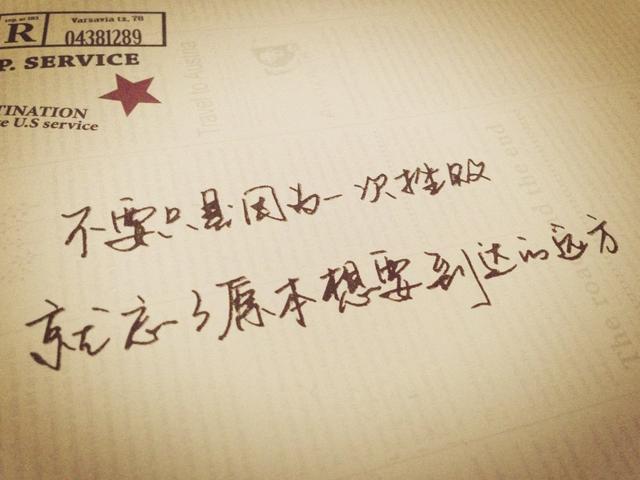 R
Varsavia tz, 78
04381289
P. SERVICE
TINATION
e U.S service
Travel to Austria
不要只是因为一次挫败
就忘了原本想要到达的远方
The road
and the end